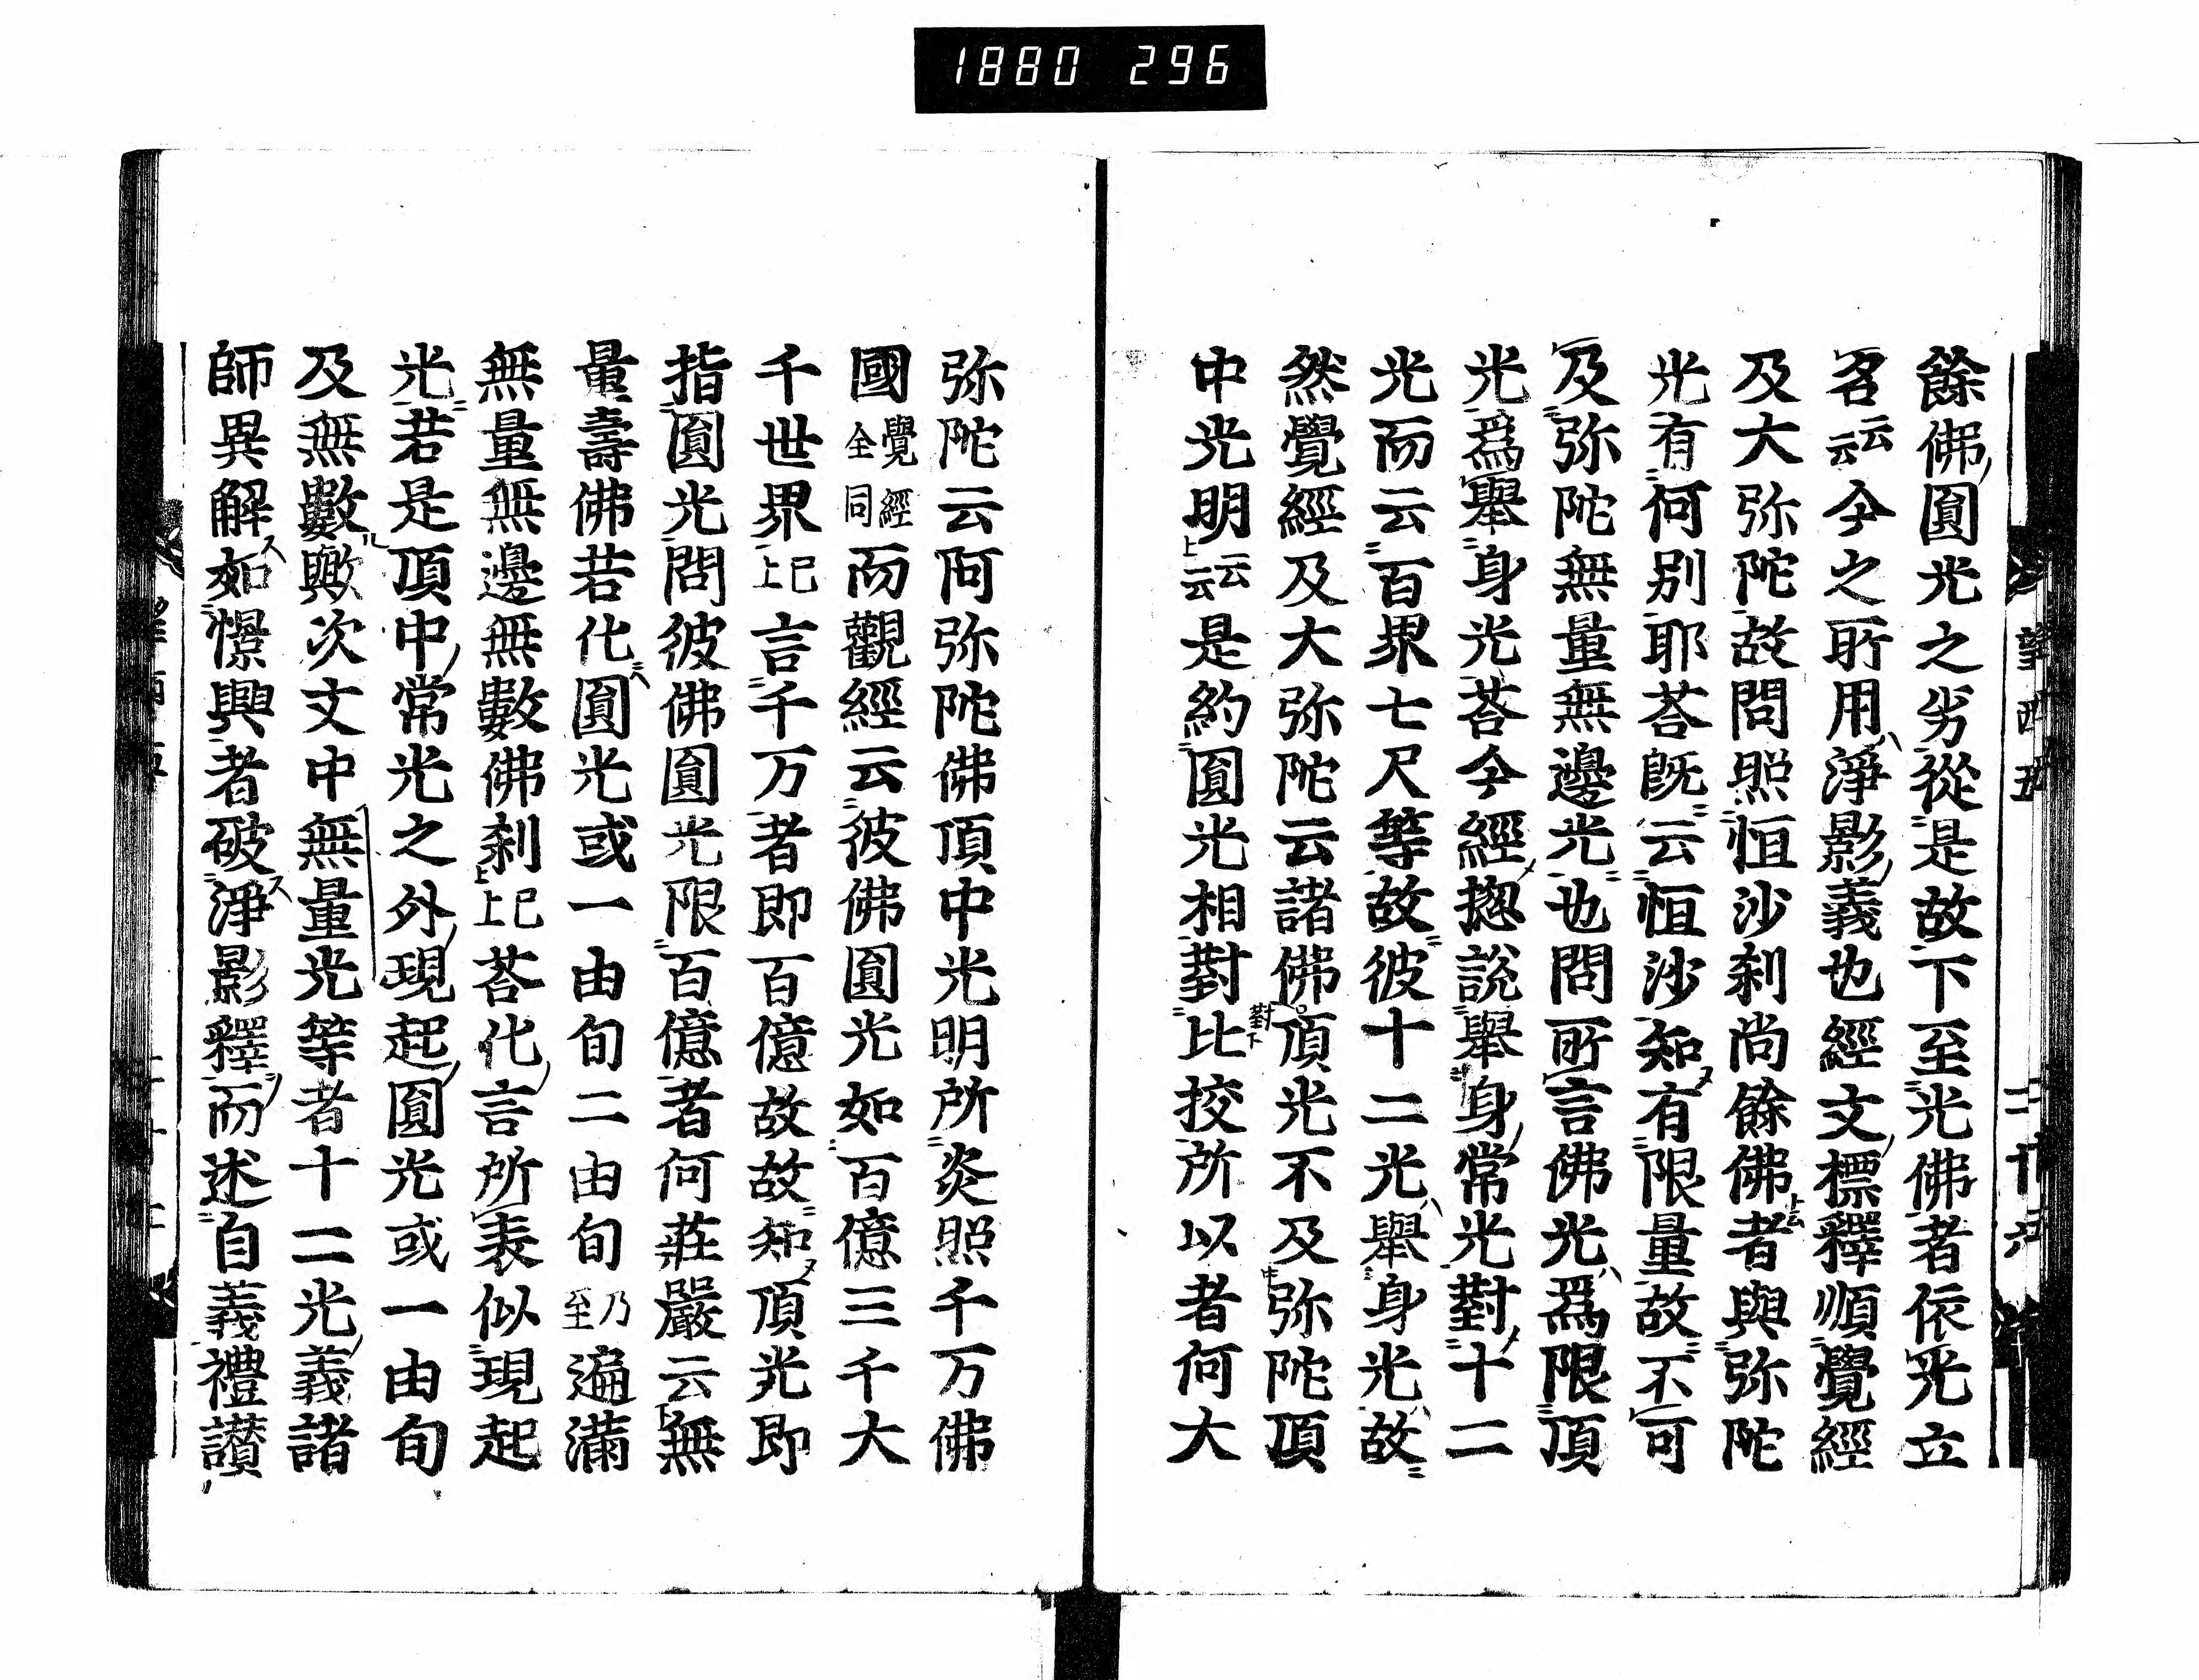 1880 296
餘佛圓光之劣從是故下至光佛者依光立
名云云今之所用淨影義也經文標釋順覺經
及大弥陀故問照恒沙刹尚餘佛者與弥陀
光有何別耶荅既云恒沙知有限量故不可
及弥陀無量無邊光也問所言佛光爲限頂
光爲舉身光荅今經揔說舉身常光對十二
光而云百界七尺等故彼十二光舉身光故
然覺經及大弥陀云諸佛頂光不及弥陀頂
中光明云云是約圓光相對比挍所以者何大
弥陀云阿弥陀佛頂中光明所炎照千万佛
國覺經全同而觀經云彼佛圓光如百億三千大
千世界已上言千万者即百億故故知頂光即
指圓光問彼佛圓光限百億者何莊嚴云無
量壽佛若化圓光或一由旬二由旬乃至遍滿
無量無邊無數佛刹已上荅化言所表似現起
光若是頂中常光之外現起圓光或一由旬
及無數歟次文中無量光等者十二光義諸
師異解如憬興者破淨影釋而述自義禮讃